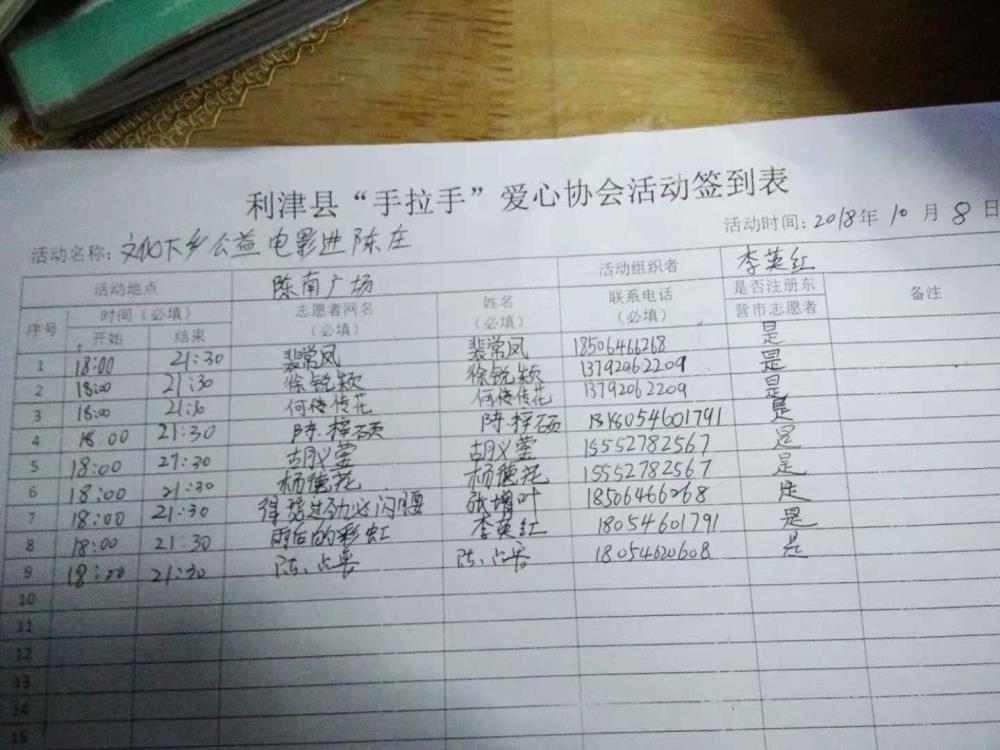 利津县“手拉手”爱心协会活动签到表
活动名称：文化下乡公益电影进陈庄 活动时间：2018年10月8日
活动地点 陈南广场 活动组织者 李英红
序号 时间（必填） 志愿者网名（必填） 姓名（必填） 联系电话（必填） 是否注册东营市志愿者 备注
开始 结束
1 18:00 21:30 裴常凤 裴常凤 18506466268 是
2 18:00 21:30 徐锐颖 徐锐颖 13792062209 是
3 18:00 21:30 何传花 何传花 13792062209 是
4 18:00 21:30 陈梓硕 陈梓硕 18054601791 是
5 18:00 21:30 胡义萱 胡义萱 15552782567 是
6 18:00 21:30 杨德花 杨德花 15552782567 是
7 18:00 21:30 得瑟过劲必闪腰 张增叶 18506466268 是
8 18:00 21:30 雨后的彩虹 李英红 18054601791 是
9 18:00 21:30 陈 陈 18054620608 是
10
11
12
13
14
15